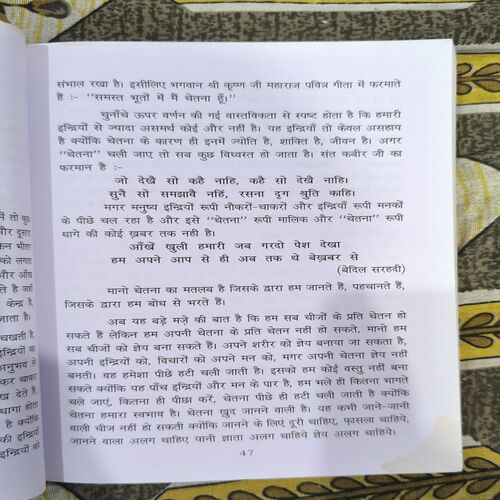 संभाल रखा है। इसीलिए भगवान श्री कृष्ण जी महाराज पवित्र गीता में फरमाते
हैं :- ‘‘समस्त भूतों में मैं चेतना हूँ।’’
चुनाँचे ऊपर वर्णन की गई वास्तविकता से स्पष्ट होता है कि हमारी
इन्द्रियों से ज्यादा असमर्थ कोई और नहीं है। यह इन्द्रियाँ तो केवल असहाय
है क्योंकि चेतना के कारण ही इनमें ज्योति है, शाक्ति है, जीवन है। अगर
‘‘चेतना’’ चली जाए तो सब कुछ विध्वस्त हो जाता है। संत कबीर जी का
फरमान है :-
जो देखै सो कहै नाहि, कहै सो देखै नाहि।
सुनै सो समझावै नहिं, रसना दृग श्रुति काहि।
मगर मनुष्य इन्द्रियाँ रूपी नौकरों-चाकरों और इन्द्रियाँ रूपी मनकों
के पीछे चल रहा है और इसे ‘‘चेतना’’ रूपी मालिक और ‘‘चेतना’’ रूपी
धागे की कोई ख़बर तक नही है।
आँखें खुली हमारी जब गरदो पेश देखा
हम अपने आप से ही अब तक थे बेख़बर से
(बेदिल सरहदी)
मानो चेतना का मतलब है जिसके द्वारा हम जानते हैं, पहचानते हैं,
जिसके द्वारा हम बोध से भरते हैं।
अब यह बड़े मज़े की बात है कि हम सब चीजों के प्रति चेतन हो
सकते हैं लेकिन हम अपनी चेतना के प्रति चेतन नहीं हो सकते, मानो हम
सब चीजों को ज्ञेय बना सकते हैं। अपने शरीर को ज्ञेय बनाया जा सकता है,
अपनी इन्द्रियों को, विचारों को अपने मन को, मगर अपनी चेतना ज्ञेय नहीं
बनती। वह हमेशा पीछे हटी चली जाती है। इसको हम कोई वस्तु नहीं बना
सकते क्योंकि यह पाँच इन्द्रियों और मन के पार है, हम भले ही कितना भागते
चले जाएं, कितना ही पीछा करें, चेतना पीछे ही हटी चली जाती है क्योंकि
चेतना हमारा स्वभाव है। चेतना ख़ुद जानने वाली है। यह कभी जाने-जानी
वाली चीज नहीं हो सकती क्योंकि जानने के लिएं दूरी चाहिए, फ़ासला चाहिये,
जानने वाला अलग चाहिए यानी ज्ञाता अलग चाहिये ज्ञेय अलग चाहिये।
47
में तो कुछ
और दूसरा
भीतर
को लगता
और आँख
ते है जहाँ
केन्द्र है,
जाता है।
चखती है,
इन्द्रियों का
अनुभव ले
कर चाकर
ख देते हैं,
धागा होता
है क्योंकि
की इन्द्रियाँ
इन्द्रियों को